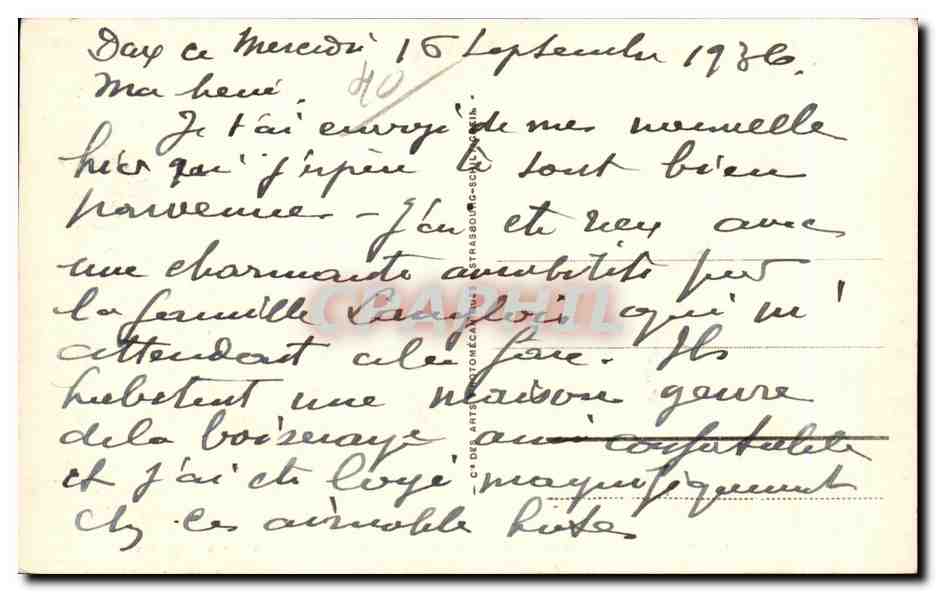 Dax ce Mercredi 16 Septembre 1936.
40
Ma
Je t'ai envoyé de mes nouvelle
hier qui j'espère te sont bien
parvenues - J'ai été reçu avec
une charmante amabilité par
la famille Langlois qui m'
attendait a la gare. Ils
habitent une maison genre
de la boiseraye aussi confortable
et j'ai été logé magnifiquement
chez ces aimable hotes
CARPHIL
- Cie DES ARTS PHOTOMÉCANIQUES STRASBOURG-SCHILTIGHEIM -